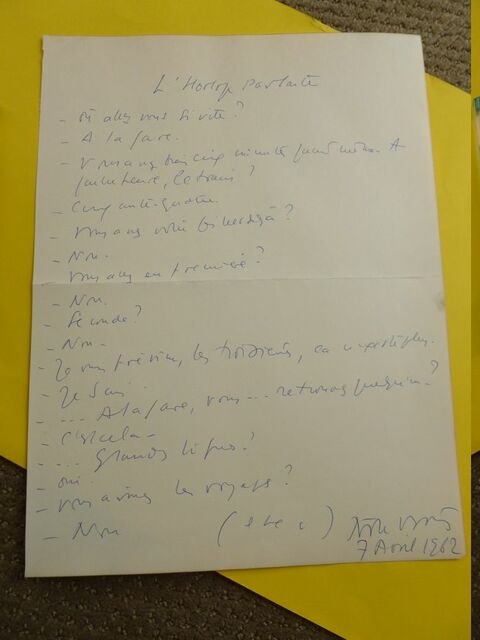 L'Horloge parlante
- Où allez vous si vite ?
- A la gare.
- Vous avez bien cinq minutes quand même. A
quelle heure, le train ?
- Cinquante-quatre.
- Vous avez votre ?
- Non.
Vous allez en première ?
- Non.
- Seconde ?
- Non -
- Je vous préviens, les troisièmes, ça n'existe plus.
- Je sais..
- .... A la gare, vous .... retrouvez quelqu'un ?
- C'est cela -
- ... Grandes lignes ?
- oui.
- vous aimez les voyages ?
- Non (etc)
7 Avril 1962